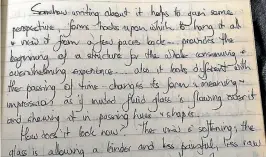 Somehow writing about it helps to gain some
perspective, forms hooks upon which to hang it all
& view it from a few paces back - provides the
beginning of a structure for the whole consuming &
overwhelming experience... also it looks different with
the passing of time - changes its form & meaning &
impression as if muted fluid glass is flowing over it
and showing it in passing hues & shapes.
How does it look now? The view is softening, the
glass is allowing a kinder and less painful, less raw